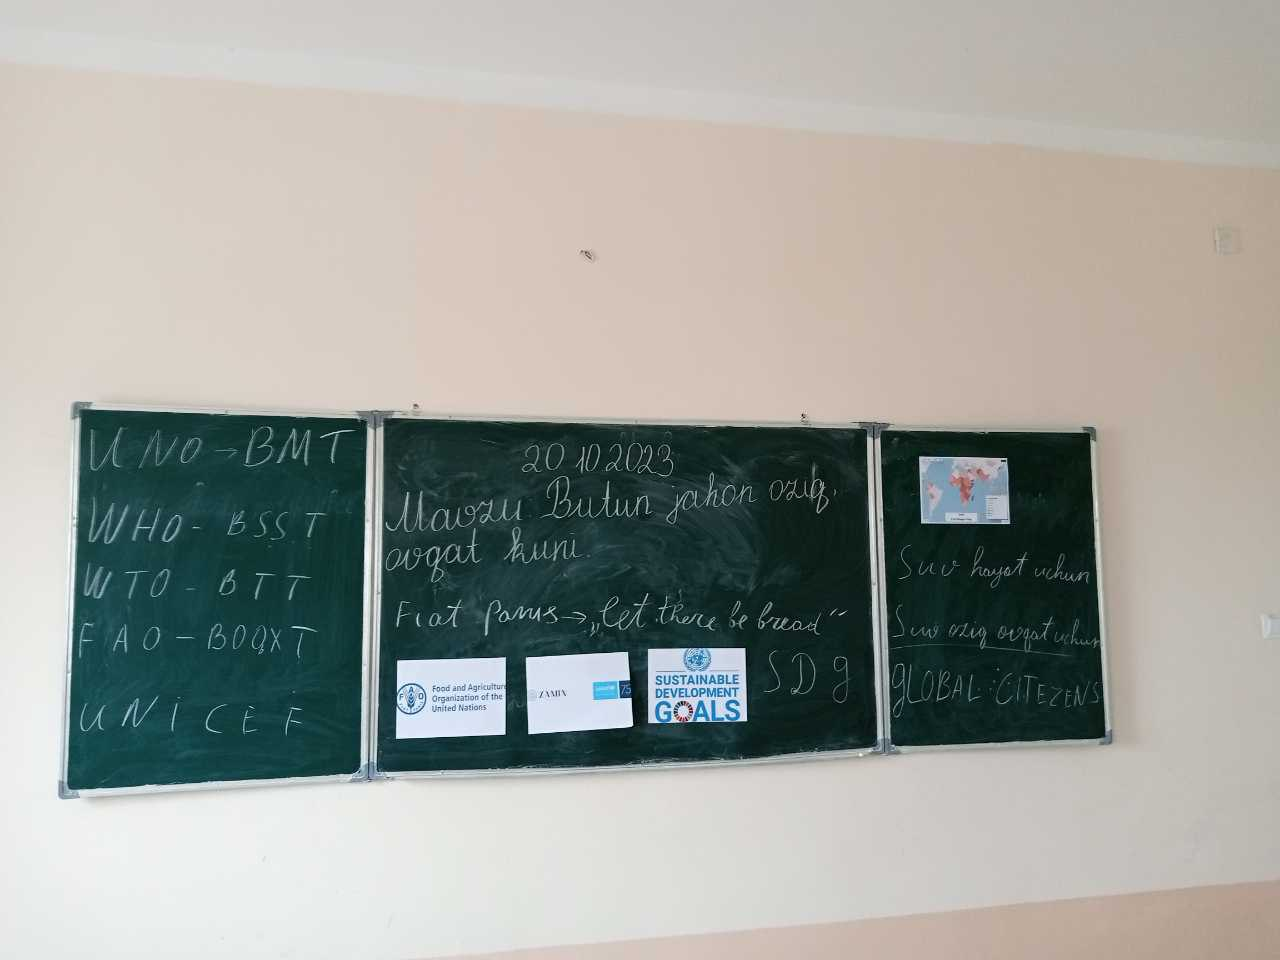 UNO → BMT
WHO - BSST
WTO - BTT
FAO - BOQXT
UNICEF
20 10 2023
Mavzu Butun jahon oziq.
ovqat kuni.
Fiat panis → „let there be bread“
Food and Agriculture
Organization of the
United Nations
ZAMIN
unicef
75
SUSTAINABLE
DEVELOPMENT
GOALS
SDG
Suv hayot uchun
Suv oziq ovqat uchun
GLOBAL CITEZENS